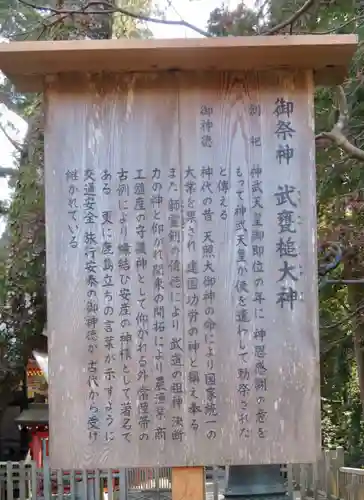 御祭神　武甕槌大神
創祀　神武天皇御即位の年に　神恩感謝の意を
もって神武天皇が使を遣して勅祭された
と伝える
御神徳　神代の昔　天照大御神の命により国家統一の
大業を果され　建国功労の神と称え奉る
また　韴霊剣の偉徳により　武道の祖神　決断
力の神と仰がれ関東の開拓により　農漁業　商
工殖産の守護神として　仰がれる外　常陸帯の
古例により　縁結び安産の神様として著名で
ある　更に鹿島立ちの言葉が示すように
交通安全　旅行安泰の御神徳が　古代から受け
継かれている